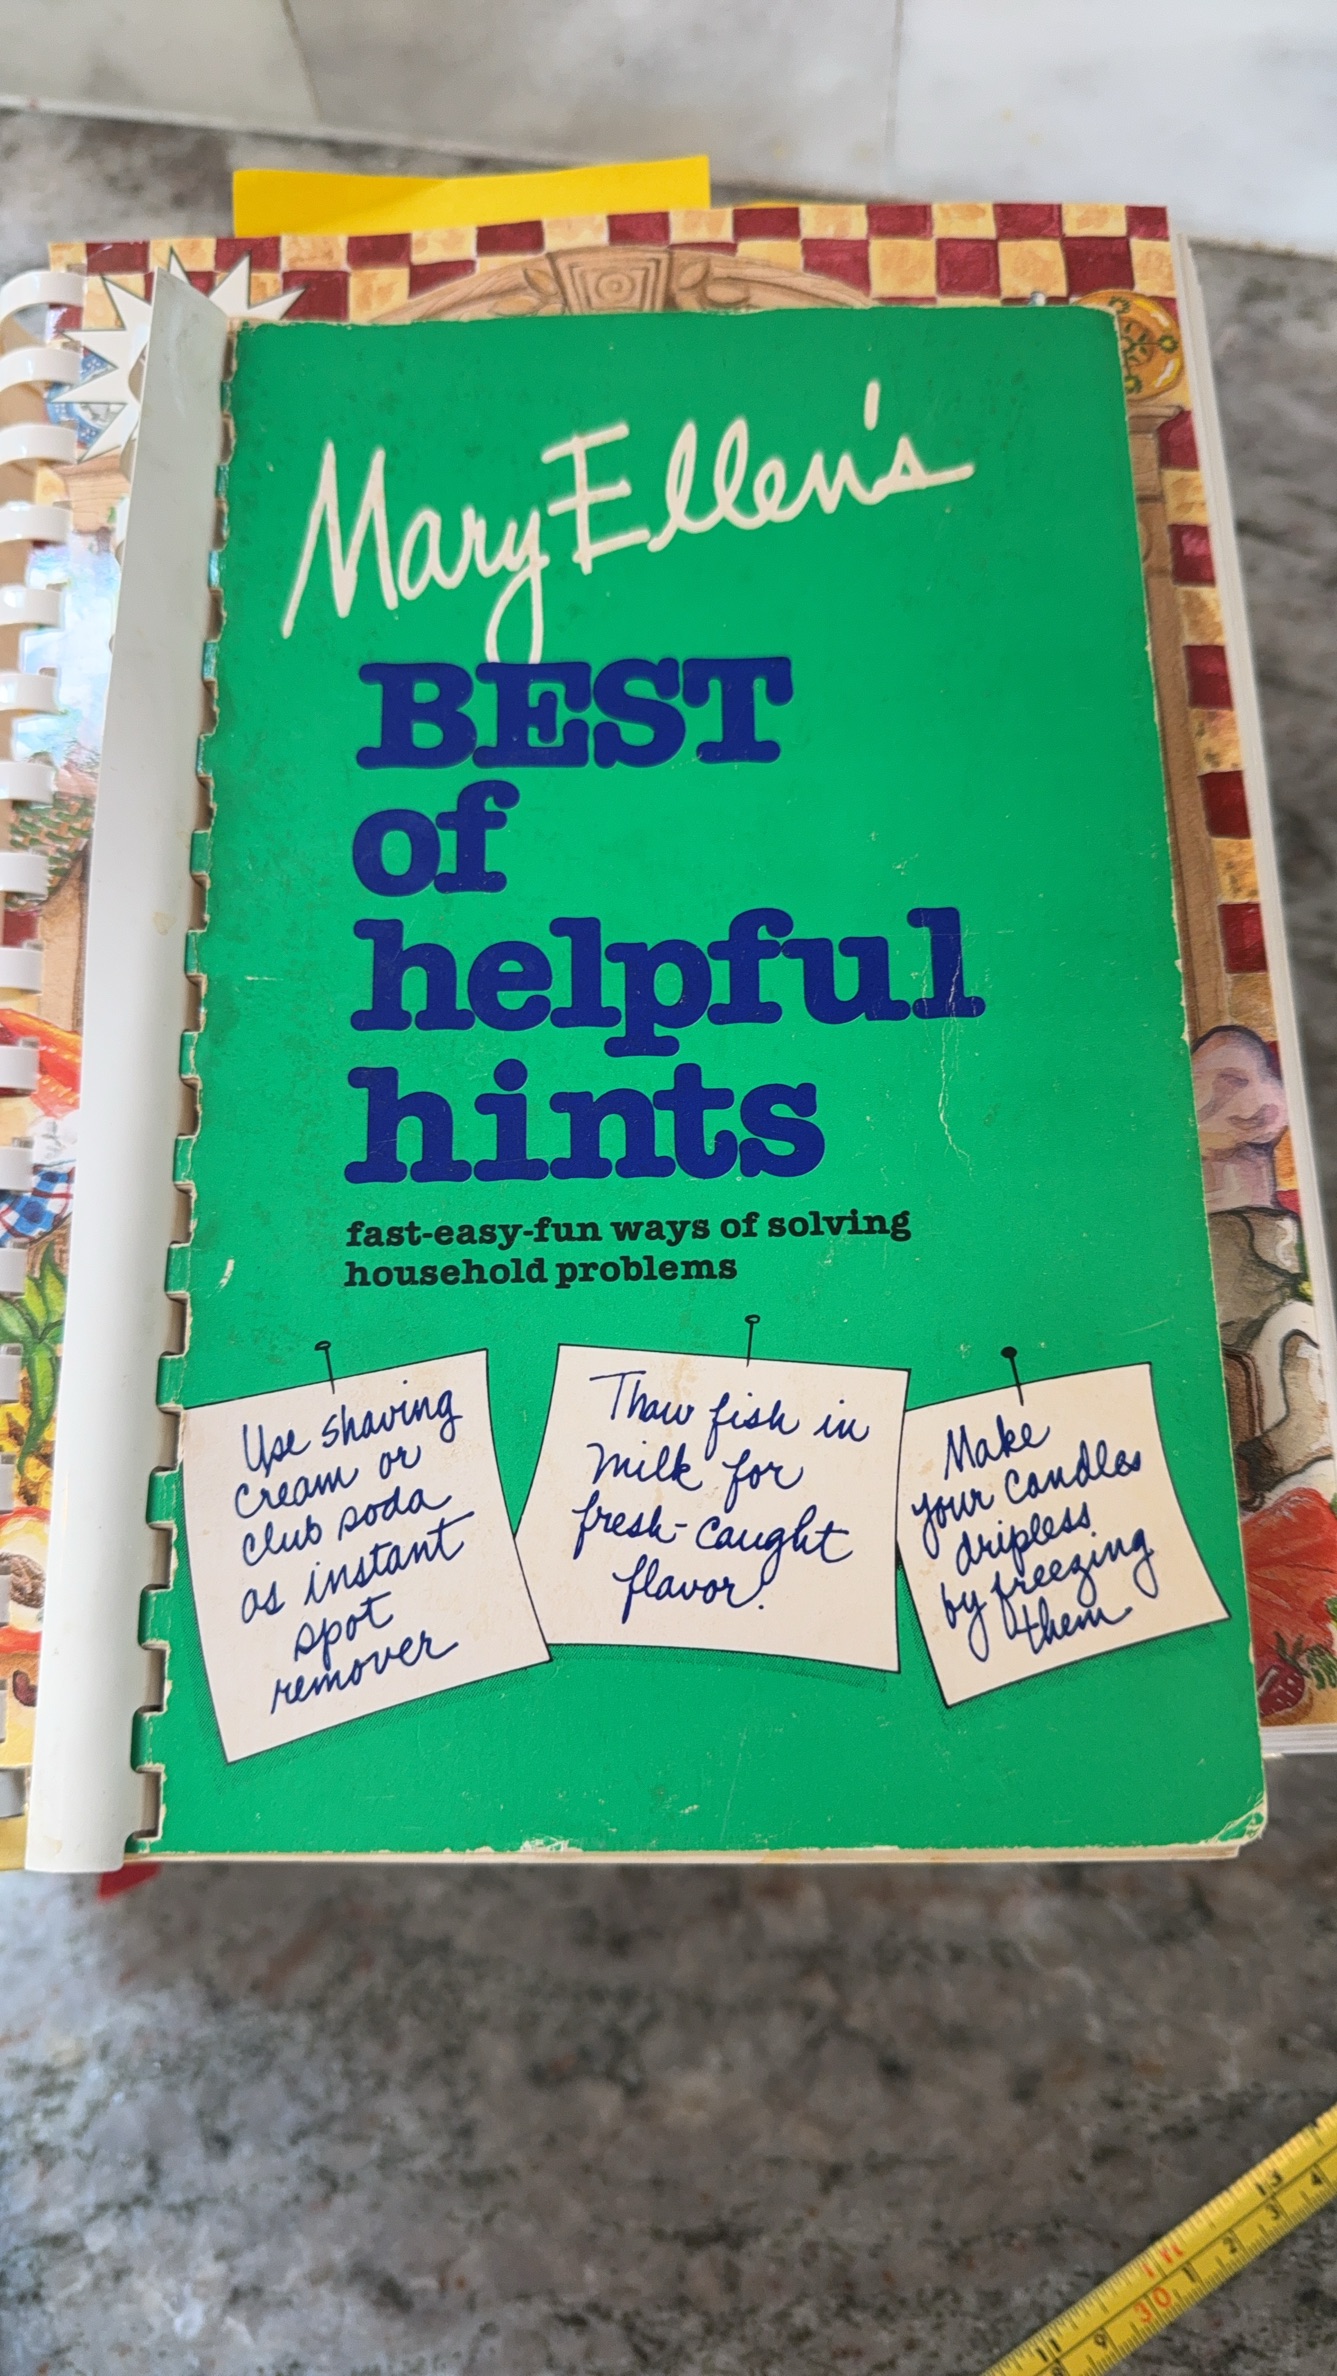 Mary Ellen's
BEST
of
helpful
hints
fast-easy-fun ways of solving
household problems
Use shaving
cream or
club soda
as instant
spot
remover
Thaw fish in
milk for
fresh-caught
flavor!
Make
your candles
dripless
by freezing
them
11
9
30
1
2
3
4